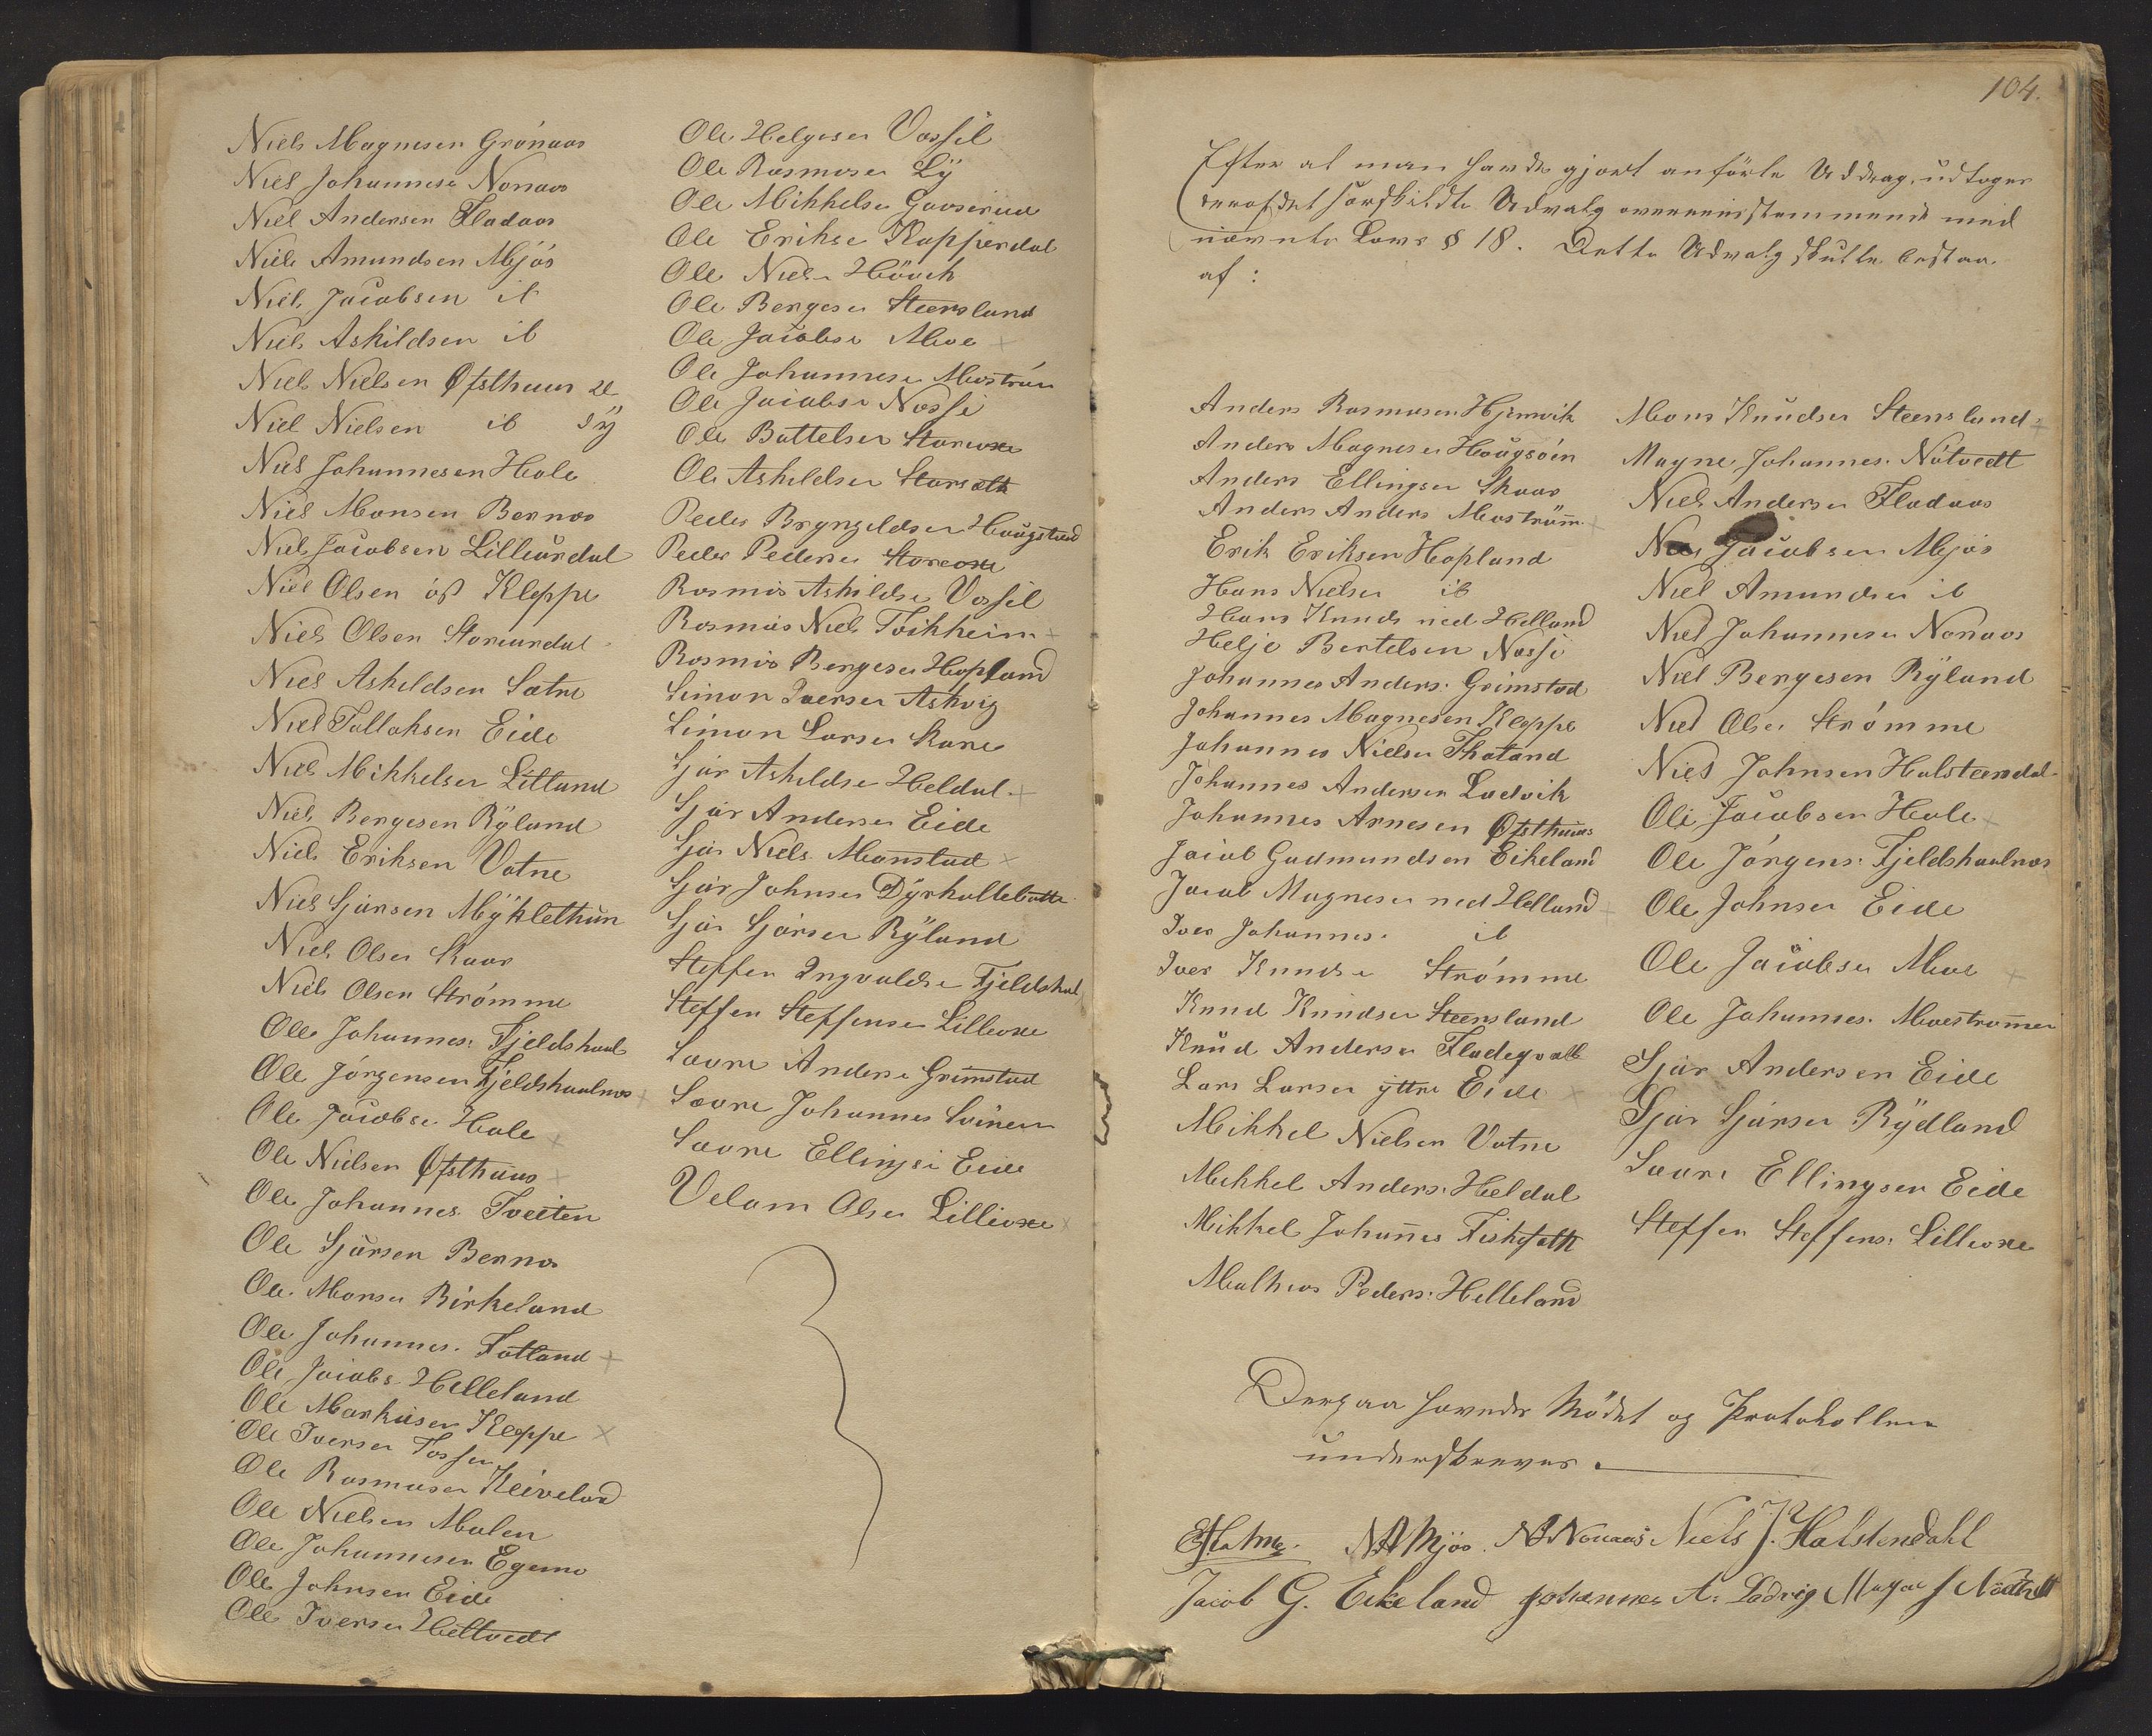 Niels Magnesen Grönaas
Niels Johannese Nonaas
Niels Andersen Fladaas
Niels Amundsen Mjös
Niels Jacobsen ib
Niels Askildsen ib
Niels Nielsen Øfsthuus æ
Niels Nielsen ib ÿ
Niels Johannesen Hole
Niels Monsen Bernæs
Niels Jacobsen Lilleurdal
Niels Olsen Kleppe
Niels Olsen Storeurdal
Niels Askeldsen Sætre
Niels Tollaksen Eide
Niels Mikkelsen Litland
Niels Bergesen Rÿland
Niels Eriksen Votne
Niels Sjursen Mÿklethun
Niels Olsen Skaar
Niels Olsen Strömme
Ole Johannes: Fjeldskaal
Ole Jörgensen Fjeldskaalnæs
Ole Jacobse Hole
Ole Nielsen Øfsthuus
Ole Johannes Tveiten
Ole Sjursen Bernæs
Ole Monsen Birkeland
Ole Johannes. Fotland
Ole Jacobs. Helleland
Ole Markusen Kleppe
Ole Iversen Fossen
Ole Rasmusen Kleiveland
Ole Nielsen Malen
Ole Johannesen Egenæs
Ole Johnsen Eide
Ole Iversen Heltvedt
Ole Helgesen Vassel
Ole Rasmusen Lÿ
Ole Mikkelse
Ole Erikse Kapperdal
Ole Niels Höÿsk
Ole Bergese Steensland
Ole Jacobse Moe
Ole Johannese Moström
Ole Jacobse Nosse
Ole Battelsen Storeoxe
Ole Askeldsen Storsæth
Peder Brÿngeldsen Hougstad
Peder Pedersen Storeoxe
Rasmus Askilds Vassel
Rasmus Niels Tvihheim
Rasmus Bergesen Hopland
Simon Iversen Askvig
Simon Larsen Skare
Sjur Askeldse Heldal
Sjur Anderse Eide
Sjur Niels Monstad
Sjur Johnsen Dÿrkollebotn
Sjur Sjursen Rÿland
Steffen Ingvaldse Fjeldskal
Steffen Steffensen Lilleoxe
Sævre Anderse Grimstad
Sævre Johannes Svinenes
Sævre Ellingse Eide
Velam Olsen Lilleoxe
104.
Efter at man havde gjort anförte Uddrag, udtoges
deraf det særskildte Udvalg overeensstemmende med
nævnte Lovs § 18. Dette Udvalg skulle bestaa
af:
Anders Rasmusen Hjemvik
Anders Magnesen Hougsöen
Anders Ellingsen Skaar
Anders Anders Moström
Erik Eriksen Hopland
Hans Nielsen ib
Hans Knuds ned Helland
Helje Bertelsen Nosse
Johannes Anders: Grimstad
Johannes Magnesen Kleppe
Johannes Nielsen Thotand
Johannes Andersen Ladvik
Johannes Arnesen Øfsthuus
Jacob Gudmundsen Eikeland
Jacob Magnesen ned Helland
Iver Johannes. ib
Iver Knuds Strömme
Knud Knudsen Steensland
Knud Andersen Fladegvalb
Lars Larsen ÿttre Eide
Mikkel Nielsen Votne
Mikkel Anders: Heldal
Mikkel Johannes Fiskesæth
Mathias Peders: Helleland
Mons Knudsen Steensland
Magne Johannes. Nötvedt
Niels Andersen Fladaas
Niels Jacobsen Mjös
Niels Amundsen ib
Niels Johannesen Nonaas
Niels Bergesen Rÿland
Niels Olsen Strömme
Niels Johnsen Halsteensdal
Ole Jacobsen Hole
Ole Jörgens: Fjeldskaalnæs
Ole Johnsen Eide
Ole Jacobsen Moe
Ole Johannes. Moestrømmen
Sjur Andersen Eide
Sjur Sjursen Rÿdland
Sævre Ellingsen Eide
Steffen Steffens: Lilleoxe
Derpaa hævedes Mödet og Protokollen
underskreves.
N A Mjös. N J Nonaas Niels J. Halstendahl
Jacob G. Eikeland Johannes A: Ladvig Magne J Nödtvedt